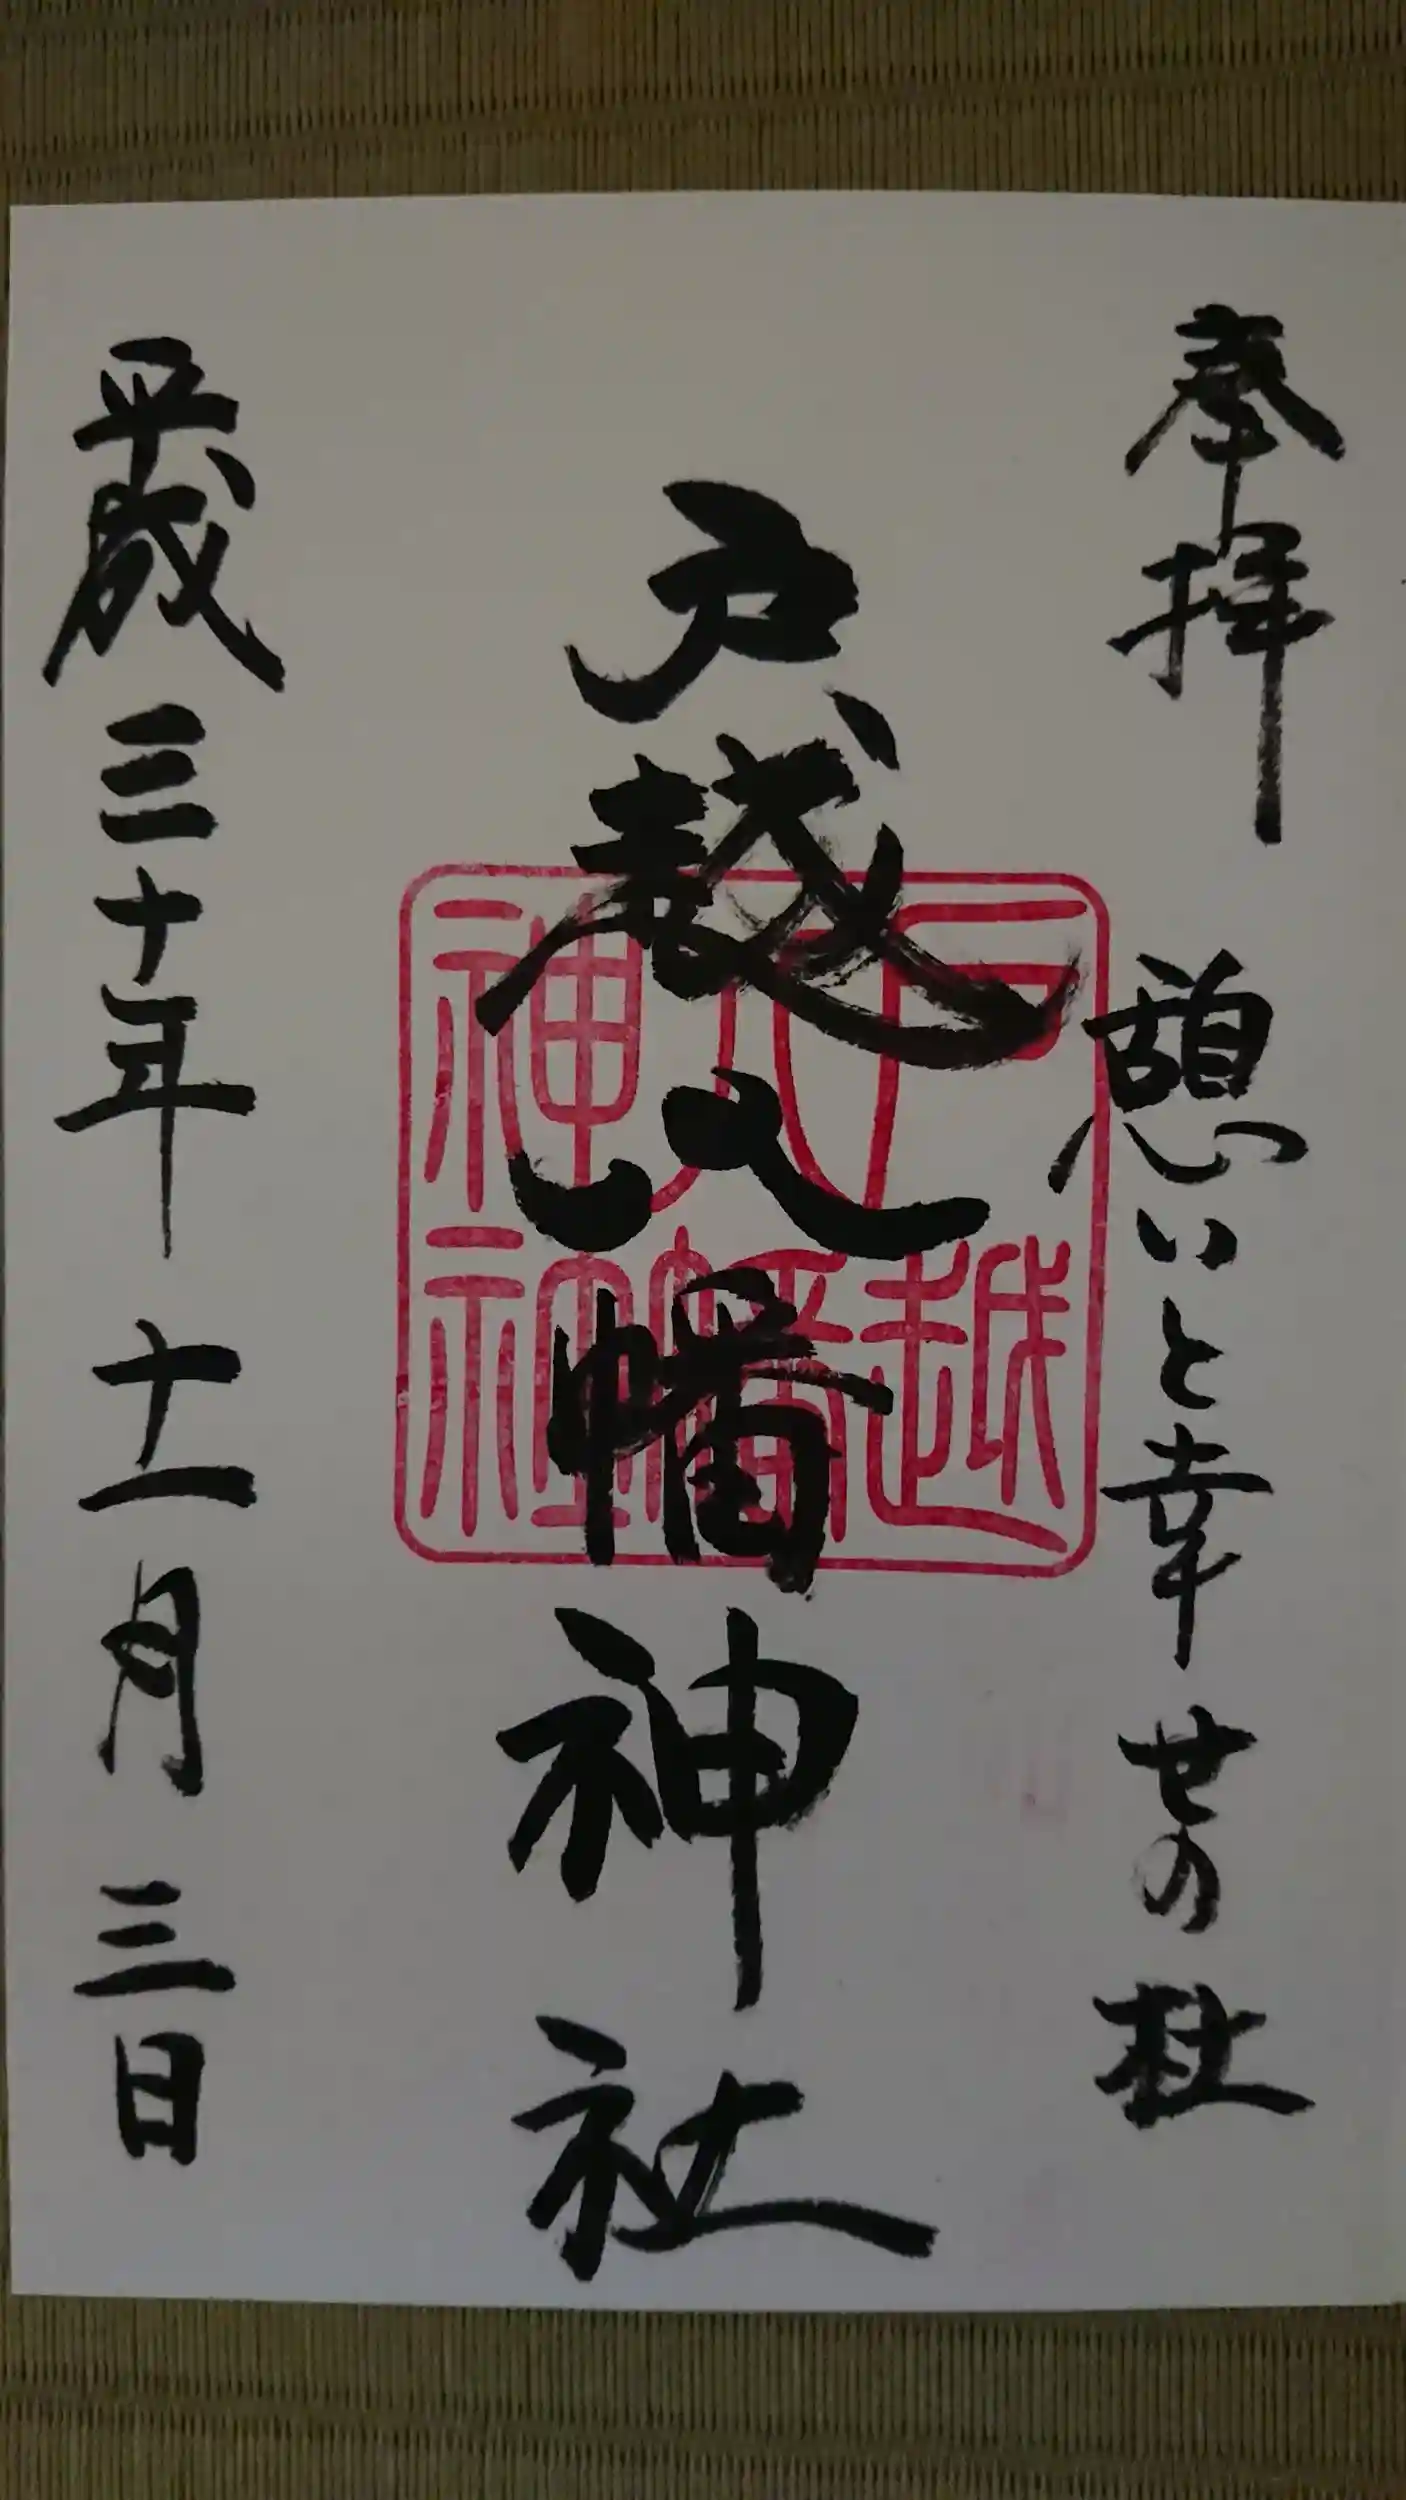 奉拝 憩いと幸せの杜
戸越八幡神社
平成三十年十一月三日
戸越八幡神社